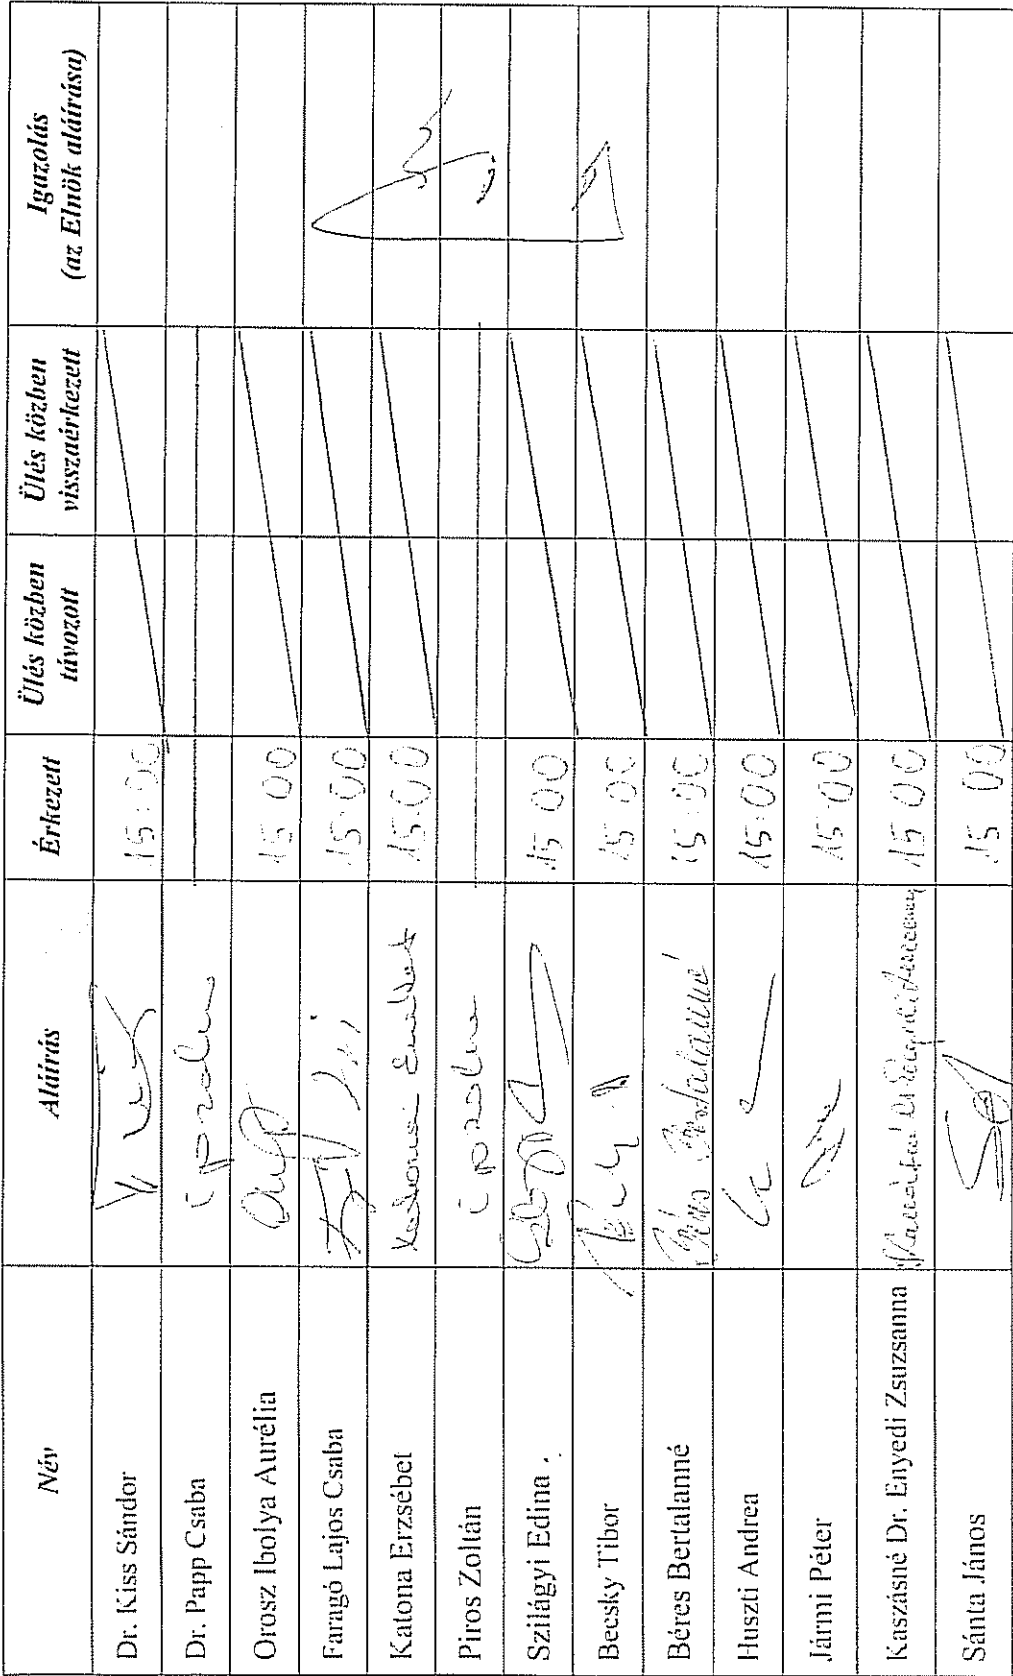 Név Aláírás Érkezett Ülés közben távozott Ülés közben visszaérkezett Igazolás (az Elnök aláírása)
Dr. Kiss Sándor 15:00
Dr. Papp Csaba
Orosz Ibolya Aurélia 15 00
Faragó Lajos Csaba 15:00
Katona Erzsébet 15:00
Piros Zoltán
Szilágyi Edina . 15 00
Becsky Tibor 15 00
Béres Bertalanné Béres Bertalanné 15:00
Huszti Andrea 15:00
Jármi Péter 15:00
Kaszásné Dr. Enyedi Zsuzsanna 15 00
Sánta János 15 00